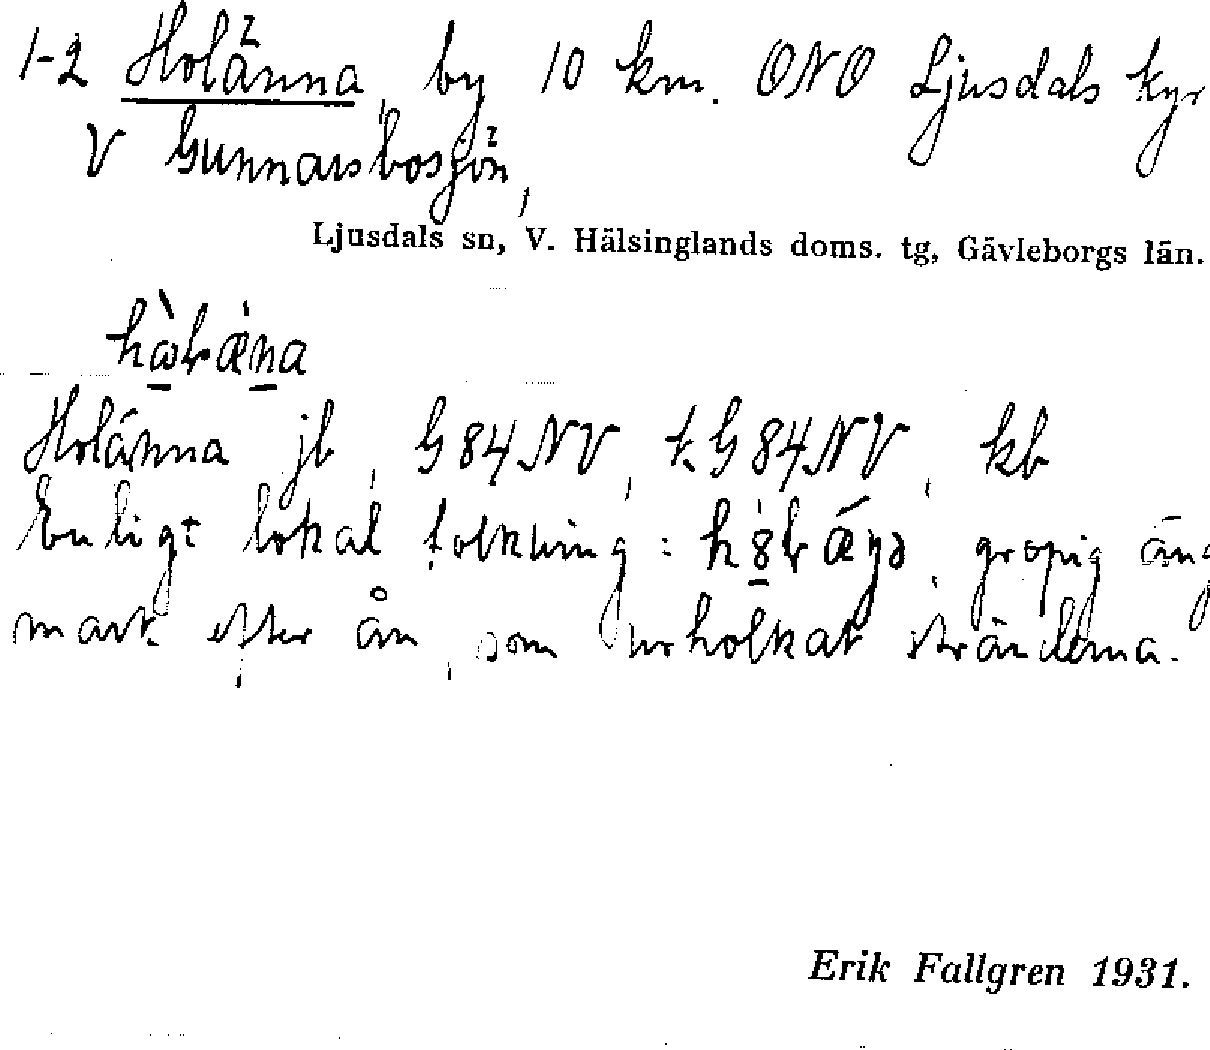 1-2 Holänna, by 10 km. ONO Ljusdals kyr
V Gunnarsbosjön,
Ljusdals sn, V. Hälsinglands doms. tg, Gävleborgs län.
Holänna jb, G84NV, t.G84NV, kb
Enligt lokal tolkning: gropig äng
mark efter ån, som urholkat stränderna.
Erik Fallgren 1931.